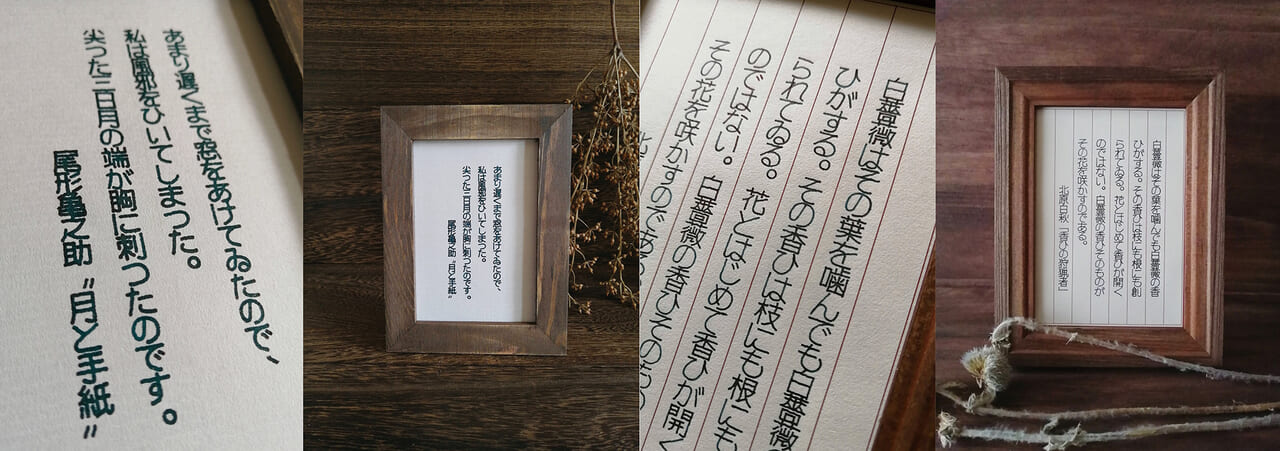 あまり遅くまで窓をあけてゐたので、
私は風邪をひいてしまつた。
尖つた三日月の端が胸に刺つたのです。
尾形亀之助 〝月と手紙〟
あまり遅くまで窓をあけてゐたので、
私は風邪をひいてしまつた。
尖つた三日月の端が胸に刺つたのです。
尾形亀之助 〝月と手紙〟
白薔薇はその葉を噛んでも白薔薇
ひがする。その香ひは枝にも根にも
られてゐる。花とはじめて香ひが開く
のではない。白薔薇の香ひそのもの
その花を咲かすのである
白薔薇はその葉を噛んでも白薔薇の香
ひがする。その香ひは枝にも根にも創
られてゐる。花とはじめて香ひが開く
のではない。白薔薇の香ひそのものが
その花を咲かすのである。
北原白秋「香ひの狩猟者」